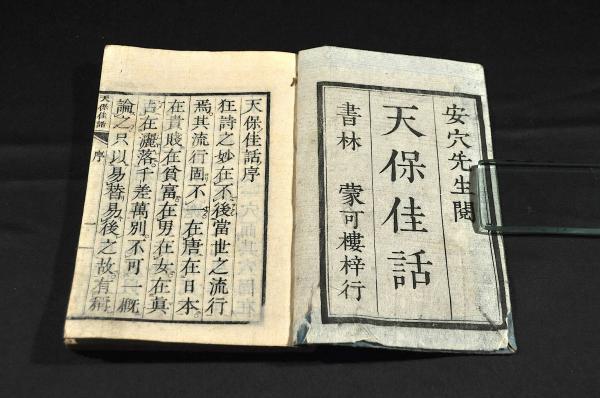 安穴先生閲
天保佳話
書林 蒙可樓梓行
天保佳話序
狂詩之妙在不後當世之流行
焉其流行固不在唐在日本
在貴賤在貧富在男在女在眞
在灑落千差萬別不可一概
論之只以易替易後之故有稱
天保佳話
序